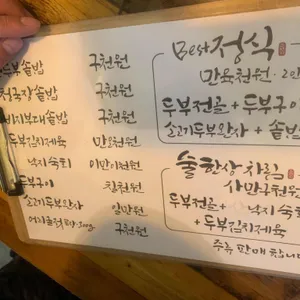 두부솥밥 구천원
청국장솥밥 구천원
비지부대솥밥 구천원
두부김치제육 만오천원
낙지숙회 이만이천원
두부구이 칠천원
소고기두부완자 일만원
구천원
Best 정식
만육천원 · 2인
두부전골 + 두부구이
소고기두부완자 + 솥밥
술한상차림
사만구천원
두부전골 + 낙지숙회
+ 두부김치제육
주류 판매합니다